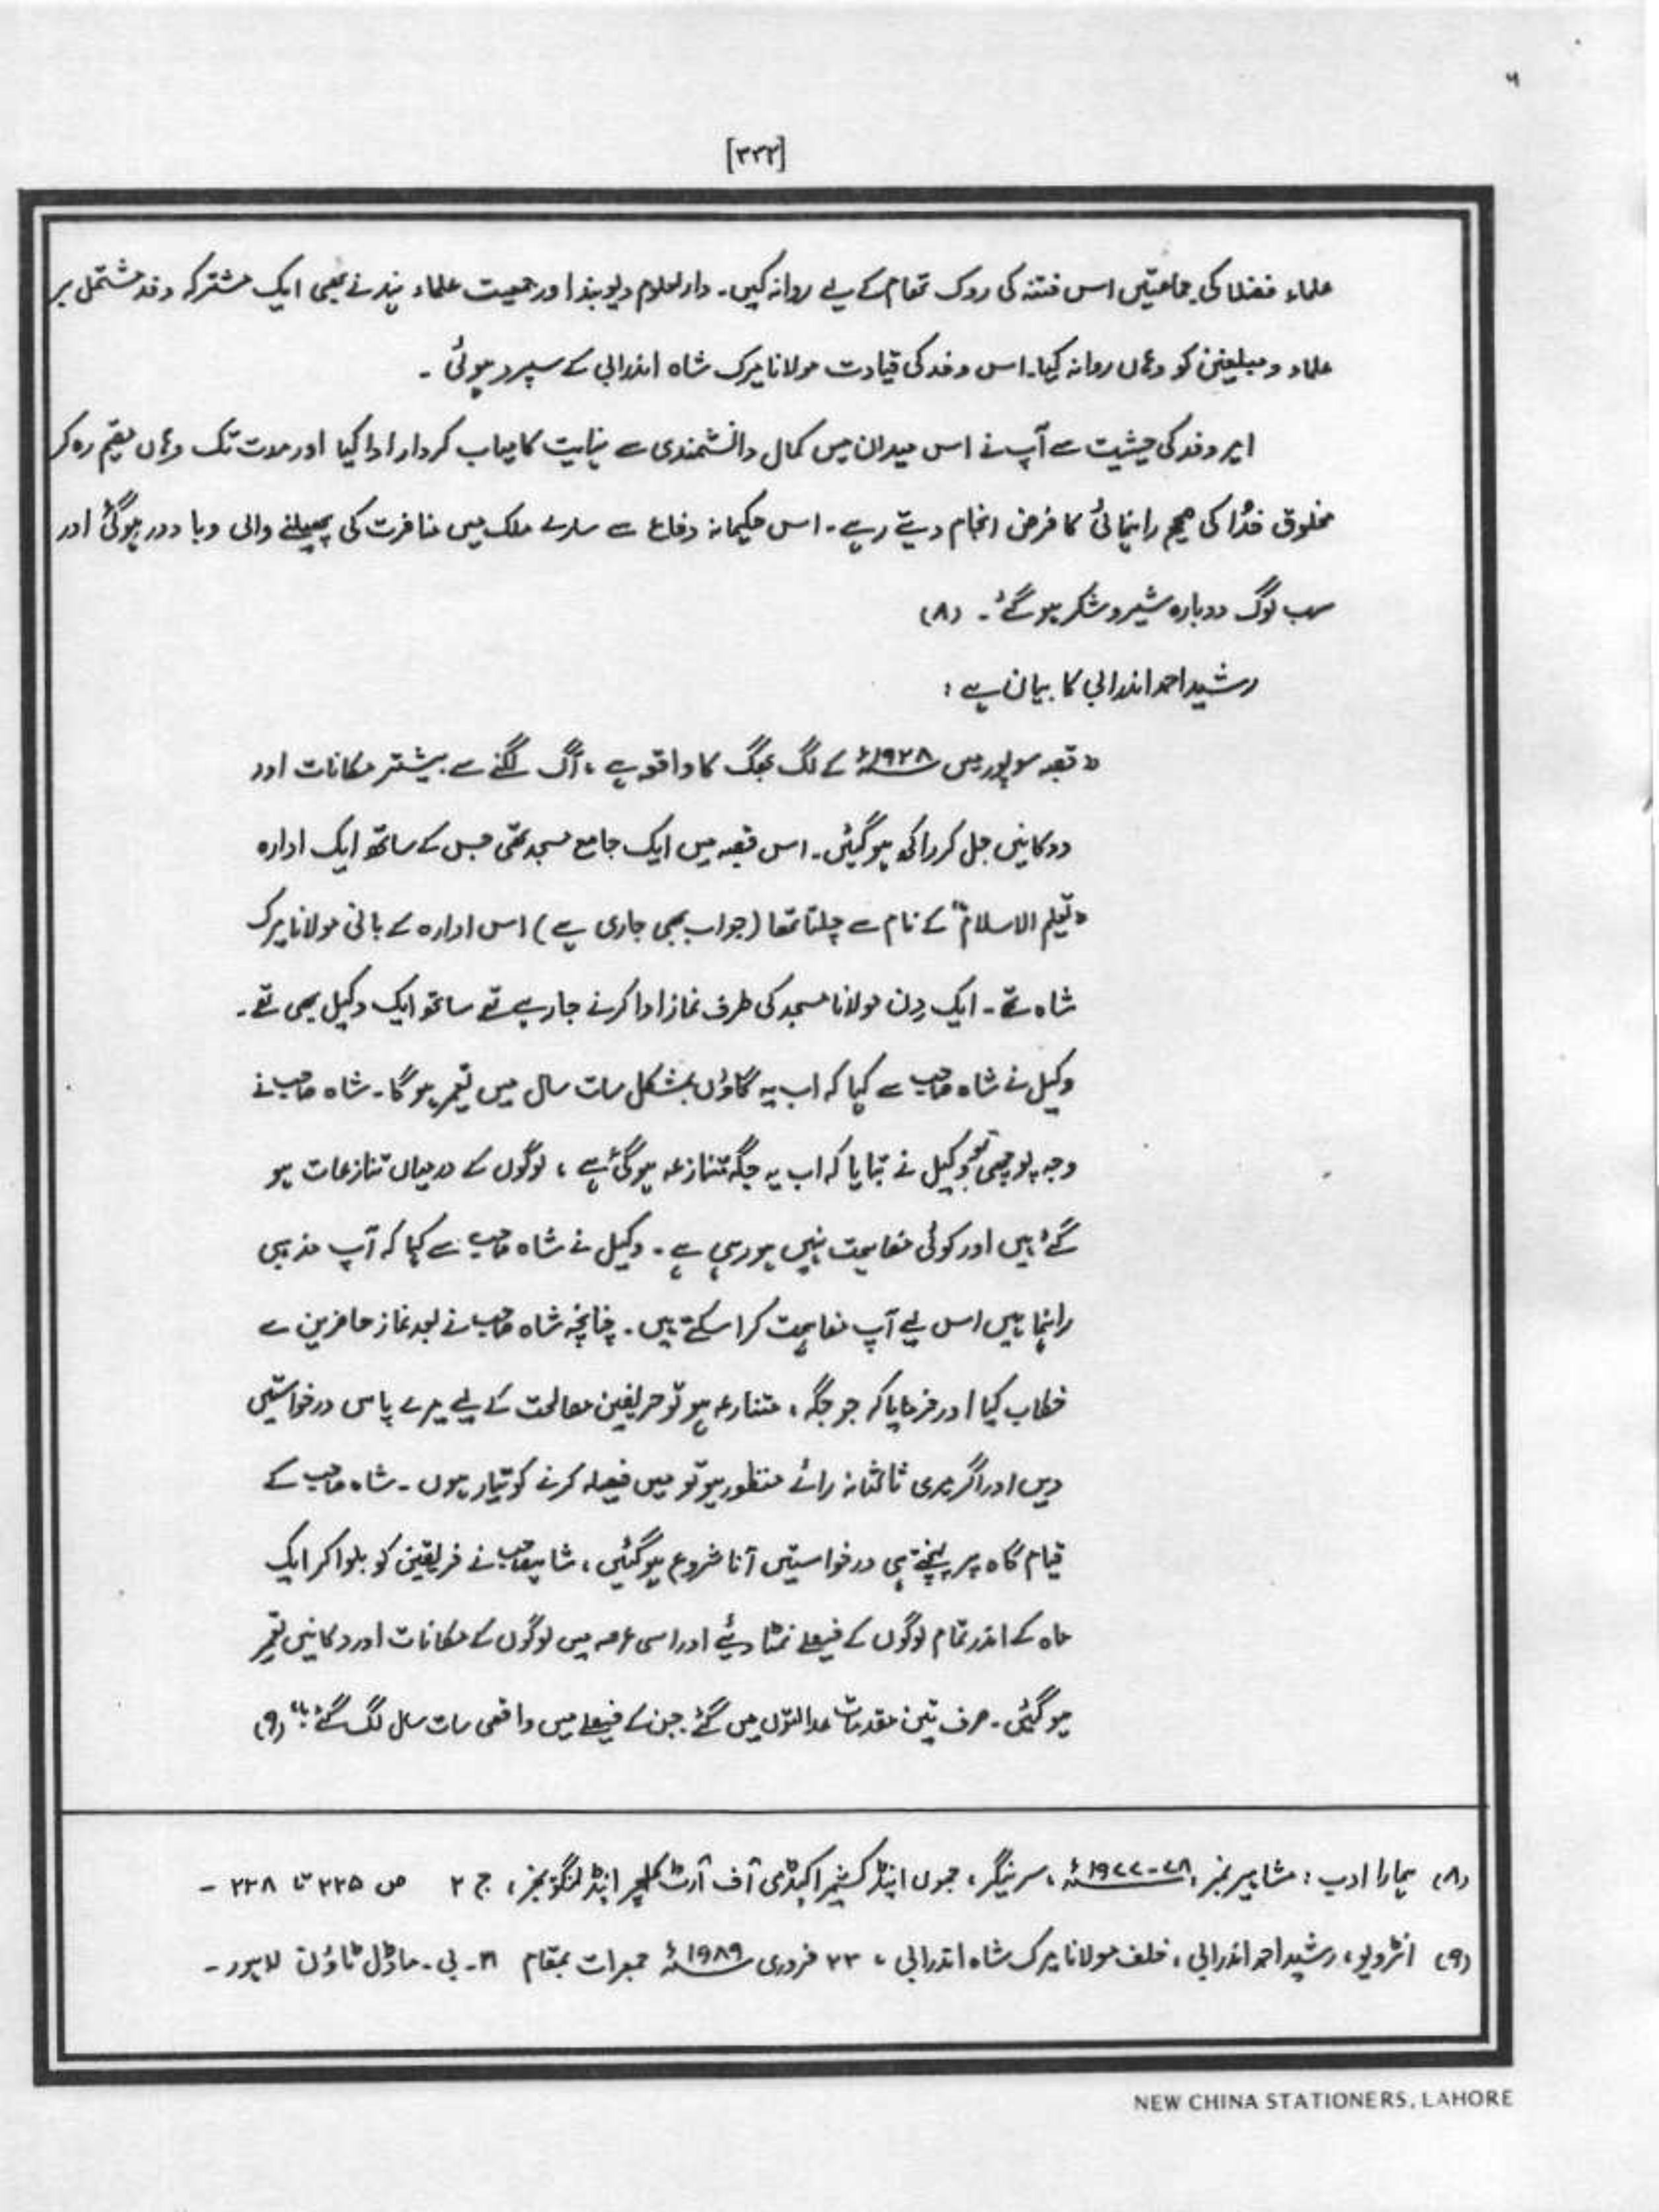 ٦
[۳۳۲]
علماء فضلا کی جماعتیں اس فتنہ کی روک تھام کے لیے روانہ کیں۔ دارلعلوم دیوبند اور جمعیت علماء ہند نے بھی ایک مشترکہ وفد مشتمل بر
علماء و مبلغین کو وہاں روانہ کیا۔ اس وفد کی قیادت مولانا میرک شاہ اندرابی کے سپرد ہوئی ۔
امیر وفد کی حیثیت سے آپ نے اس میدان میں کمال دانشمندی سے نہایت کامیاب کردار ادا کیا اور مدت تک وہاں مقیم رہ کر
مخلوق خدُا کی صحیح راہنمائی کا فرض انجام دیتے رہے۔ اس حکیمانہ دفاع سے سارے ملک میں منافرت کی پھیلنے والی وبا دور ہوگئی اور
سب لوگ دوبارہ شیر و شکر ہو گئے ۔ (۸)
رشید احمد اندرابی کا بیان ہے :
" قصبہ سوپور میں ۱۹۲۸ء کے لگ بھگ کا واقعہ ہے ، آگ لگنے سے بیشتر مکانات اور
دوکانیں جل کر راکھ ہو گئیں۔ اس قصبہ میں ایک جامع مسجد تھی جس کے ساتھ ایک ادارہ
"تعلیم الاسلام" کے نام سے چلتا تھا (جو اب بھی جاری ہے) اس ادارہ کے بانی مولانا میرک
شاہ تھے ۔ ایک دِن مولانا مسجد کی طرف نماز ادا کرنے جا رہے تھے ساتھ ایک وکیل بھی تھے۔
وکیل نے شاہ صاحب سے کہا کہ اب یہ گاؤں بمشکل سات سال میں تعمیر ہو گا۔ شاہ صاحب نے
وجہ پوچھی تو وکیل نے بتایا کہ اب یہ جگہ متنازعہ ہوگئی ہے ، لوگوں کے درمیان تنازعات ہو
گئے ہیں اور کوئی مفاہمت نہیں ہو رہی ہے ۔ وکیل نے شاہ صاحب سے کہا کہ آپ مذہبی
راہنما ہیں اس لیے آپ مفاہمت کرا سکتے ہیں۔ چنانچہ شاہ صاحب نے بعد نماز حاضرین سے
خطاب کیا اور فرمایا کہ جو جگہ ، متنازعہ ہو تو حریفین مصالحت کے لیے میرے پاس درخواستیں
دیں اور اگر میری ثالثانہ رائے منظور ہو تو میں فیصلہ کرنے کو تیار ہوں ۔ شاہ صاحب کے
قیام گاہ پر پہنچتے ہی درخواستیں آنا شروع ہو گئیں ، شاہصاحب نے فریقین کو بلوا کر ایک
ماہ کے اندر تمام لوگوں کے فیصلے نمٹا دیئے اور اسی عرصہ میں لوگوں کے مکانات اور دکانیں تعمیر
ہو گئیں ۔ صرف تین مقدمات عدالتوں میں گئے جن کے فیصلے میں واقعی سات سال لگ گئے !" (۹)
(۸) ہمارا ادب : مشاہیر نمبر ، ۷۸-۱۹۷۷ء ، سرینگر ، جموں اینڈ کشمیر اکیڈمی آف آرٹ کلچر اینڈ لنگوئجز ، ج ۲ ص ۲۲۵ تا ۲۳۸ ۔
(۹) انٹرویو ، رشید احمد اندرابی ، خلف مولانا میرک شاہ اندرابی ، ۲۳ فروری ۱۹۸۹ء جمعرات بمقام ۔ بی ۔ ماڈل ٹاؤن لاہور ۔
NEW CHINA STATIONERS, LAHORE